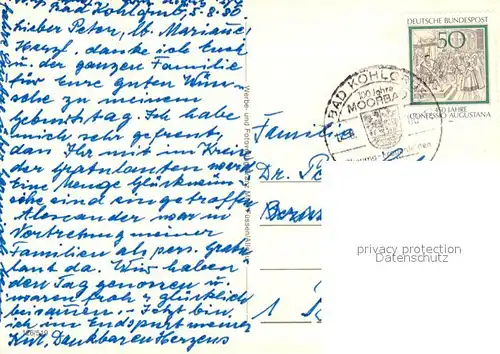 Bad Kohlgrub, 5.8.80
Lieber Peter, lb. Marianne!
Herzl. danke ich Euch
u. der ganzen Familie
für Eure guten Wün-
sche zu meinem
Geburtstag. Ich habe
mich sehr gefreut,
daß Ihr mit im Kreis
der Gratulanten wart.
Eine Menge Glückwün-
sche sind eingetroffen
Alexander war in
Vertretung meiner
Familien als pers. Gratu-
lant da. Wir haben
den Tag genossen u.
waren froh u. glücklich
beisammen. Jetzt bin
ich im Endspurt meiner
Kur. Dankbaren Herzens
DEUTSCHE BUNDESPOST
50
450 JAHRE
CONFESSIO AUGUSTANA
BAD KOHLGRUB
100 Jahre
MOORBAD
Familie
Dr.
1
privacy protection
Datenschutz